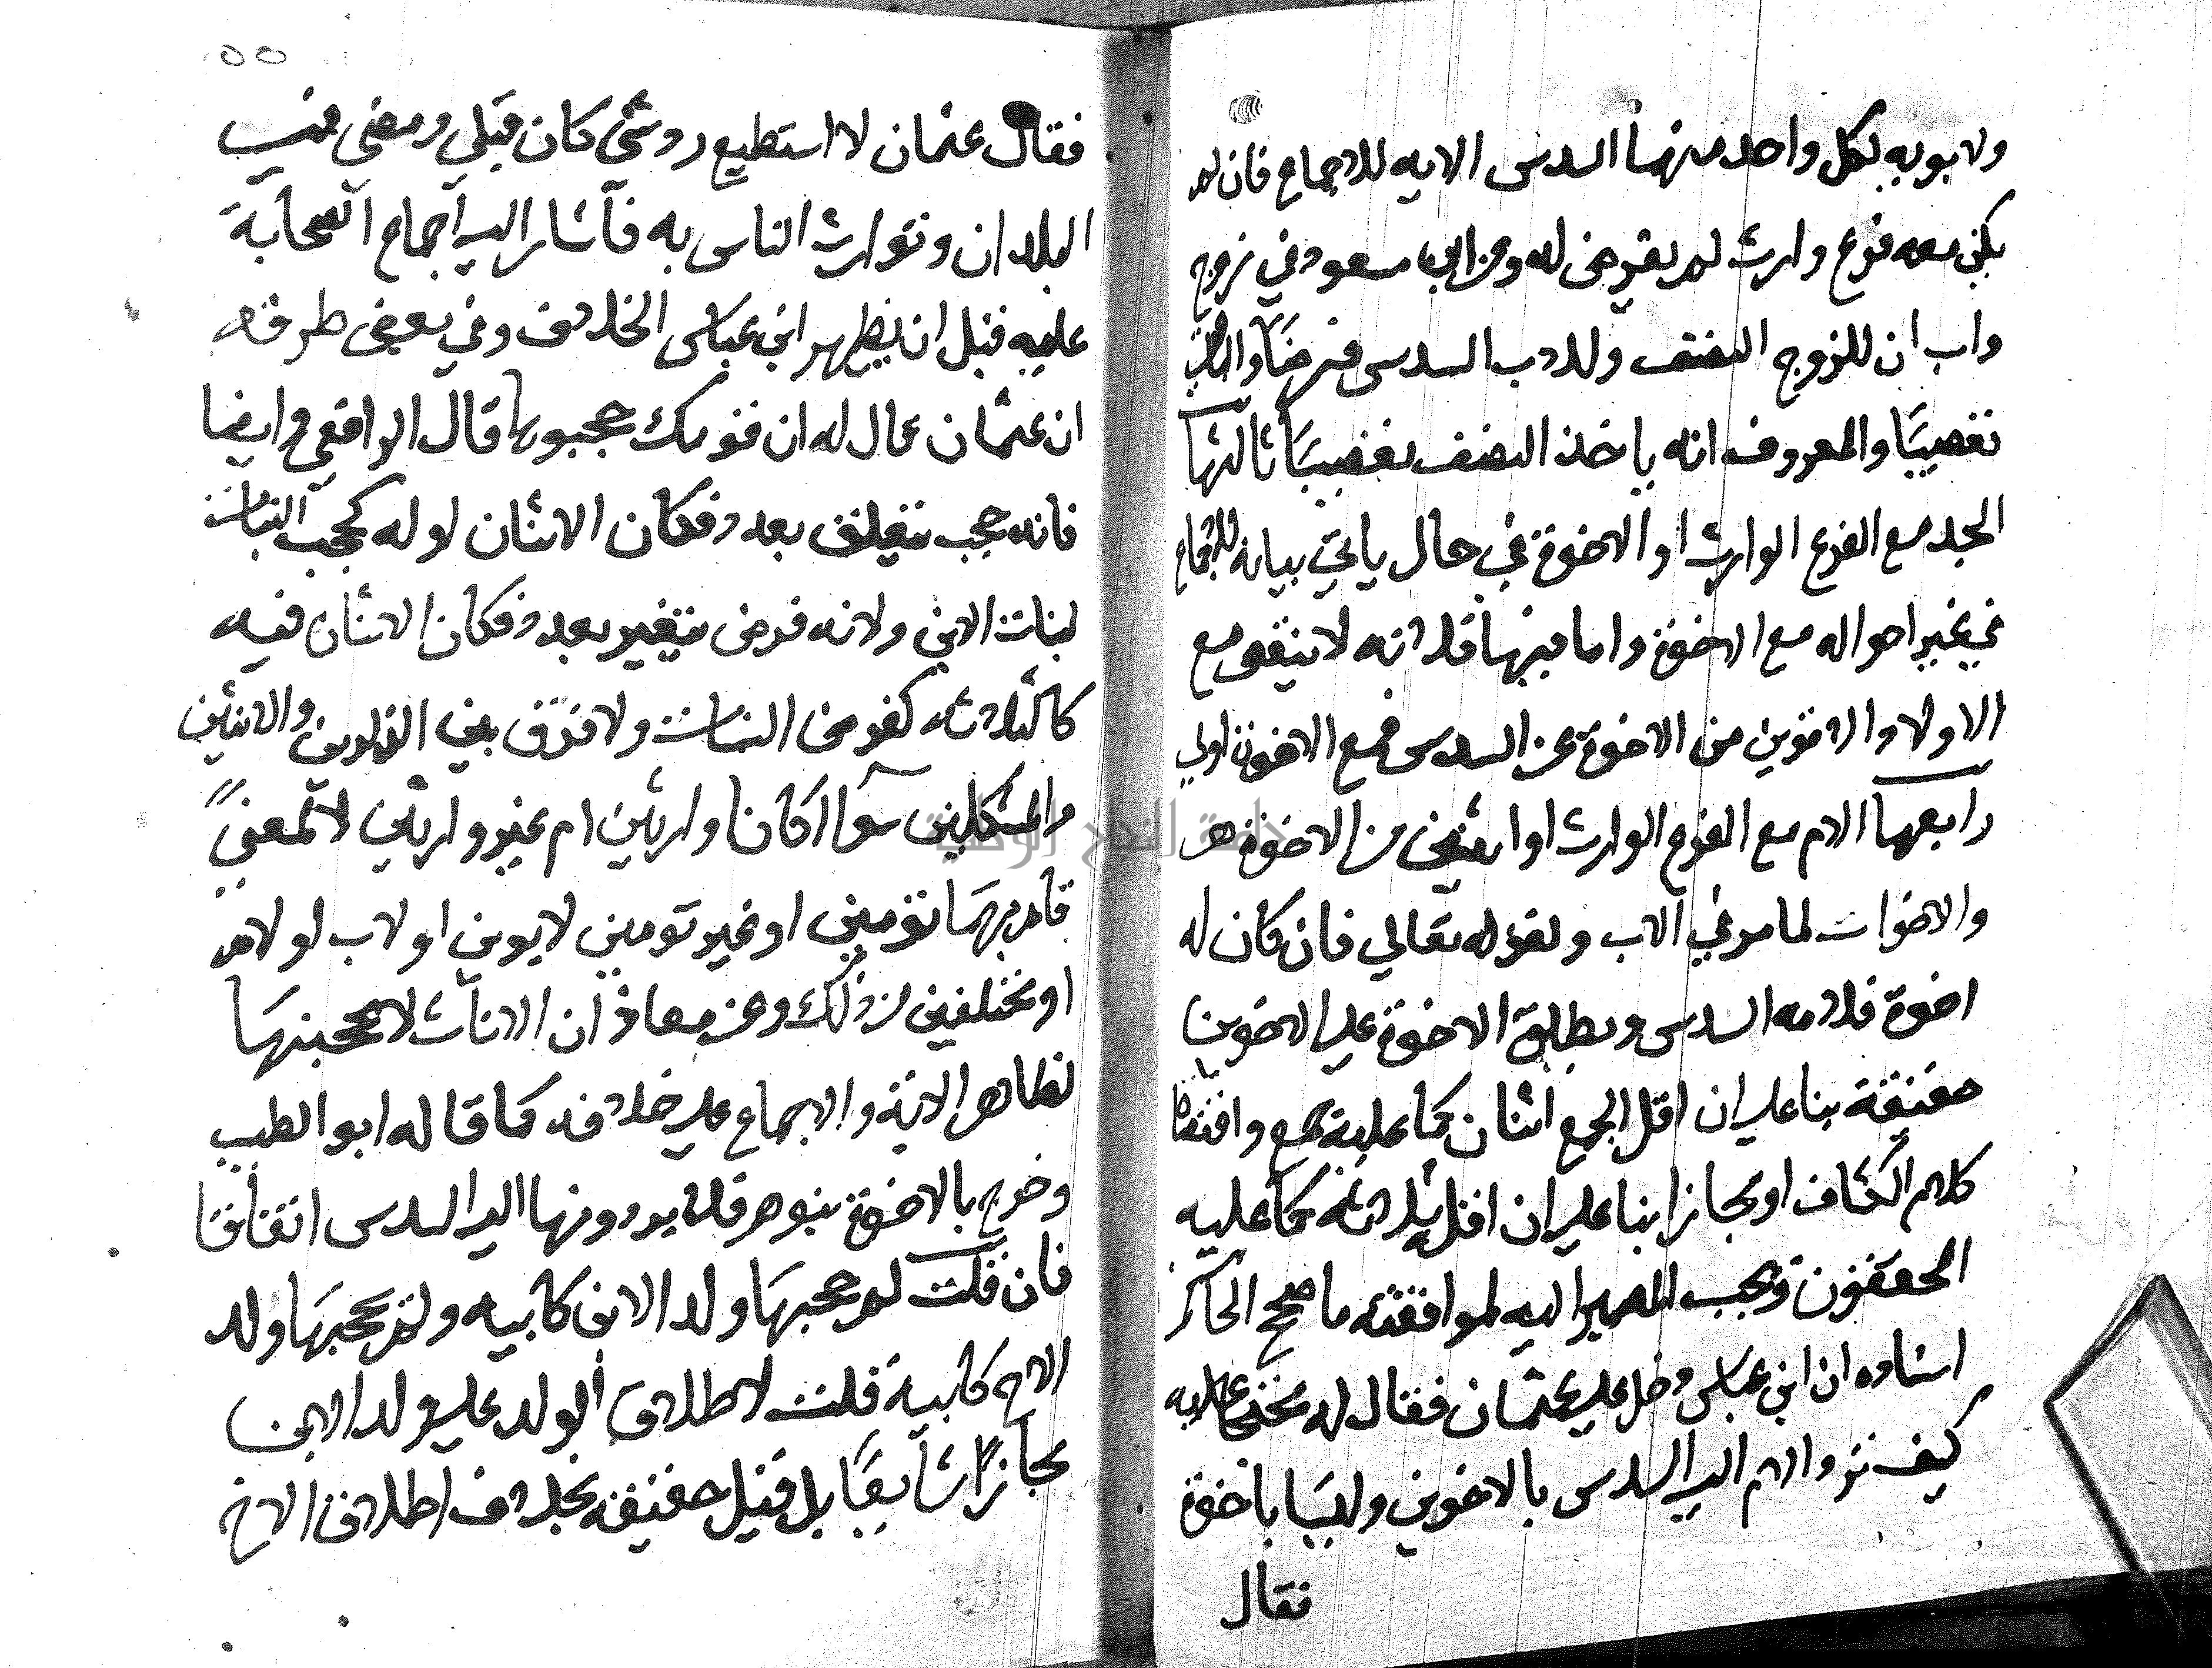 ولابويه لكل واحد منهما السدس الايه للاجماع فان لم
يكن معه فرع وارث لم يفرض له وعن ابن مسعود في زوج
واب ان للزوج النصف وللاب السدس فرضا والباقي
تعصيبا والمعروف انه ياخذ النصف تعصيبا ثالثها
الجد مع الفرع الوارث او الاخوة في حال ياتي بيانه للاجماع
في غير احواله مع الاخوة واما فيها فلانه لا ينقص مع
الاولاد الاقوين من الاخوة عن السدس فمع الاخوة اولي
رابعها الام مع الفرع الوارث او اثنين من الاخوة
والاخوات لما مر في الاب ولقوله تعالي فان كان له
اخوة فلامه السدس ويطلق الاخوة علي الاخوين
حقيقة بنا علي ان اقل الجمع اثنان كما عليه جمع واقتضاه
كلام الكشاف او مجازا بنا علي ان اقل ثلاثة كما عليه
المحققون ويجب المصير اليه لموافقته ما صحح الحاكم
اسناده ان ابن عباس دخل علي عثمان فقال له محتجا عليه
كيف تزد الام الي السدس بالاخوين وليسا باخوة
فقال
٥٥
فقال عثمان لا استطيع رد شي كان قبلي ومضي في
البلدان وتوارث الناس به فاشار الي اجماع الصحابة
عليه قبل ان يظهر ابن عباس الخلاف وفي بعض طرقه
ان عثمان قال له ان قومك حجبوها قال الرافعي وايضا
فانه حجب يتعلق بعدد فكان الاثنان اوله كحجب البنات
لبنات الابن ولانه فرض يتغير بعدد فكان الاثنان فيه
كالثلاثة كفرض البنات ولا فرق بين الذكرين والانثيين
والمشكلين سوآ اكانا وارثين ام غير وارثين لا لمعني
قام بهما تومين او غير تومين لابوين او لاب او لام
او مختلفين في ذلك وعن معاذ ان الاناث لا يحجبنها
لظاهر الاية والاجماع علي خلافه كما قاله ابو الطيب
وخرج بالاخوة بنوهم فلا يردونها الي السدس اتفاقا
فان قلت لم حجبها ولد الابن كابيه ولم يحجبها ولد
الاخ كابيه قلت لاطلاق الولد علي ولد الابن
مجازا شايعا بل قيل حقيقة بخلاف اطلاق الاخ